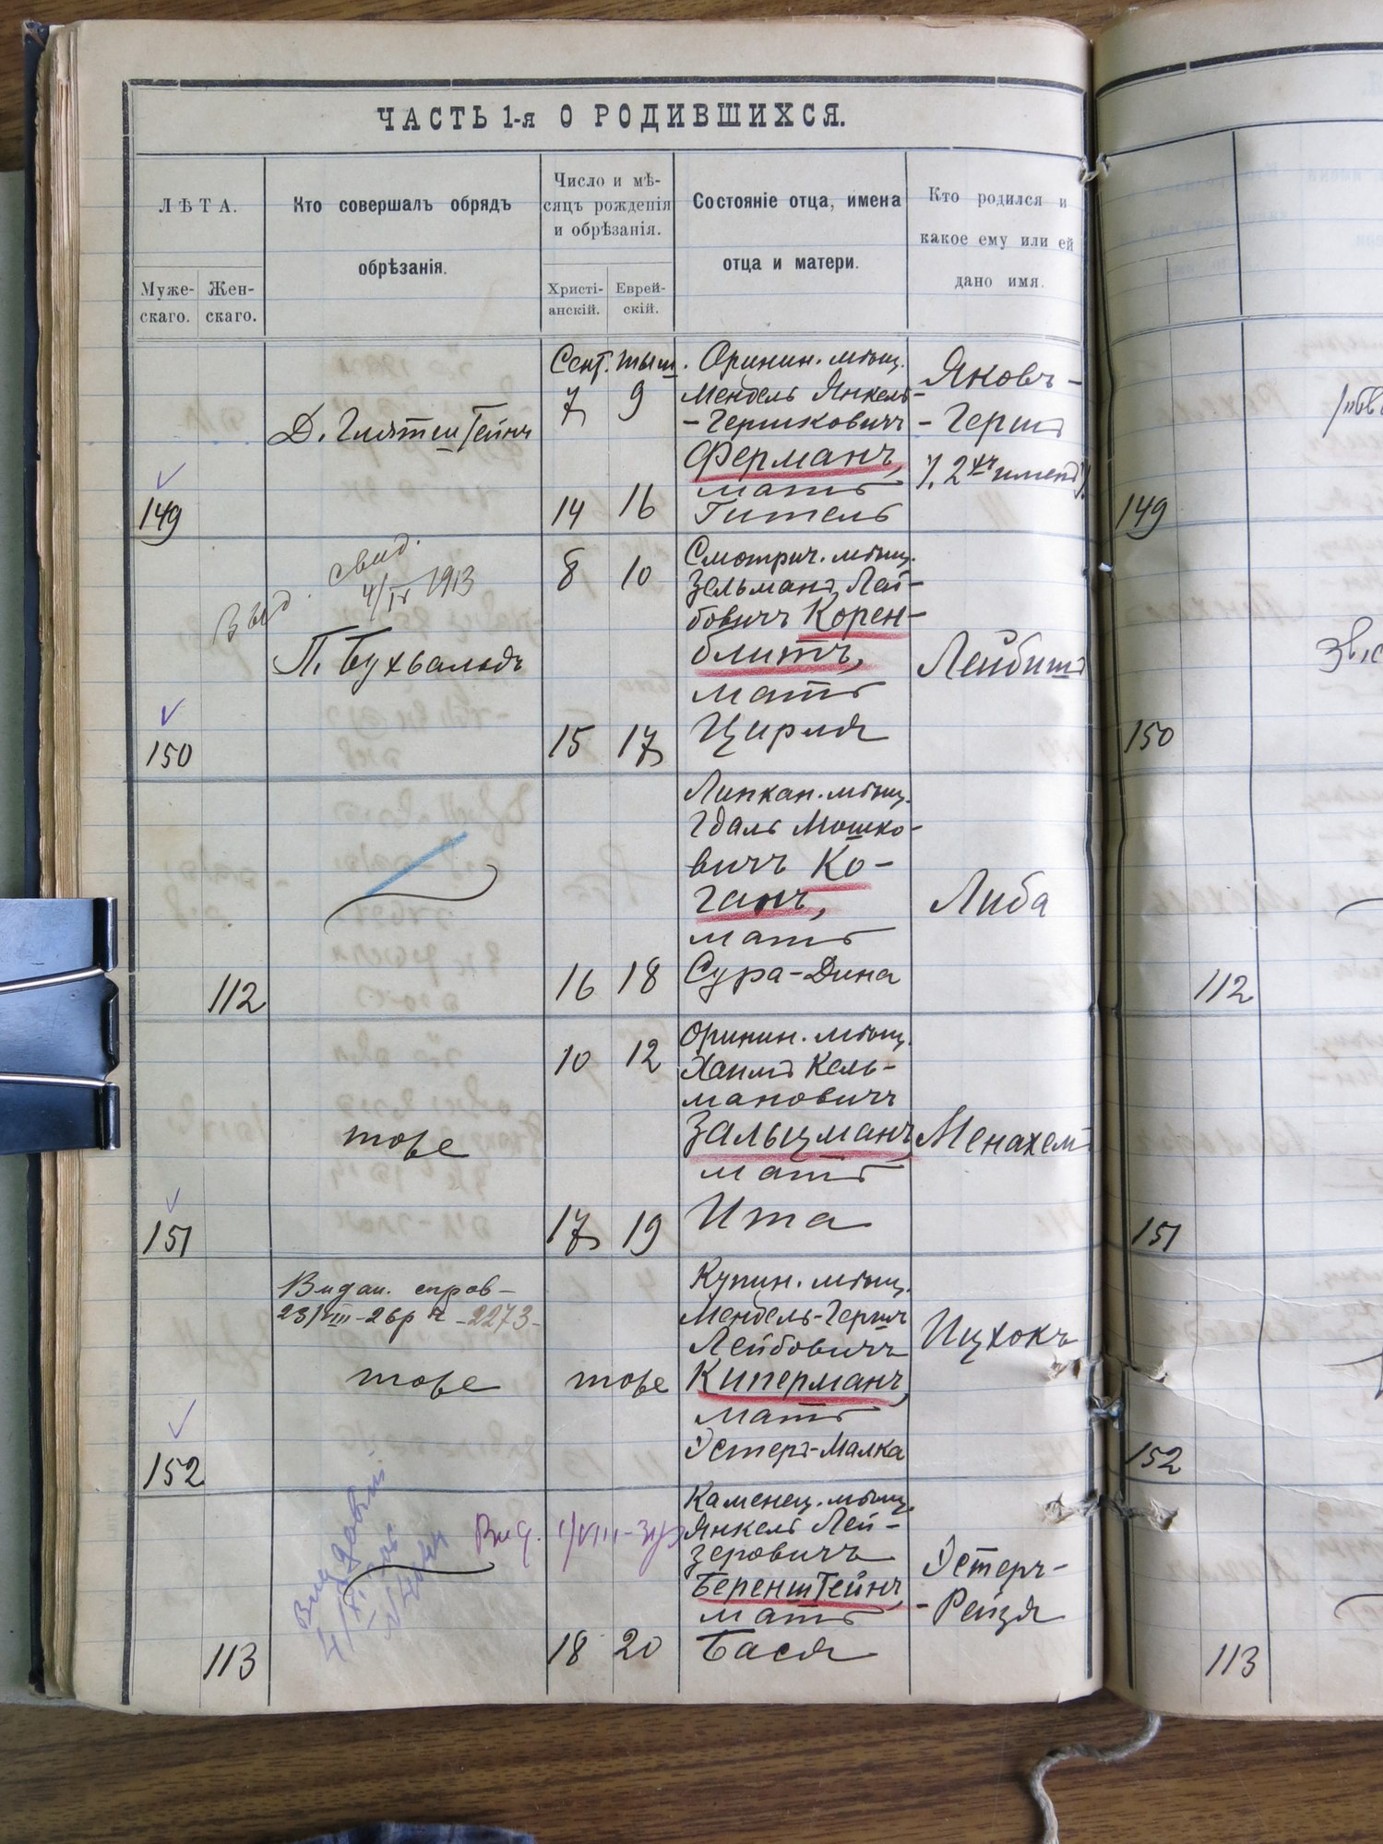 ЧАСТЬ 1-я О РОДИВШИХСЯ.
ЛѢТА.
Муже-
скаго.
Жен-
скаго.
Кто совершалъ обрядъ
обрѣзанія.
Число и мѣ-
сяцъ рожденія
и обрѣзанія.
Христі-
анскій.
Еврей-
скій.
Состояніе отца, имена
отца и матери.
Кто родился и
какое ему или ей
дано имя.
149
Сент. тыш.
7 9
14 16
Оринин. мѣщ.
Мендель Янкель-
-Гершковичъ
Ферманъ,
мать
Гитель
Яковъ-
-Гершъ
149
Выд. свид.
4/IV 1913
П. Бухвальдъ
150
8 10
15 17
Смотрич. мѣщ.
Зельманъ Лей-
бовичъ Корен-
блитъ,
мать
Цирля
Лейбишъ
150
112
16 18
Липкан. мѣщ.
Гдаль Мошко-
вичъ Ко-
ганъ,
мать
Сура-Дина
Либа
112
тоже
151
10 12
17 19
Оринин. мѣщ.
Хаимъ Кель-
мановичъ
Зальцманъ,
мать
Ита
Менахем
151
Видан. справ-
23/VIII-26р ч -2273-
тоже
152
тоже
Купин. мѣщ.
Мендель-Гершъ
Лейбовичъ
Киперманъ,
мать
Эстеръ-Малка
Ицхокъ
152
113
18 20
Каменец. мѣщ.
Янкель Лей-
зеровичъ
Беренштейнъ,
мать
Бася
Эстеръ-
-Рейзя
113